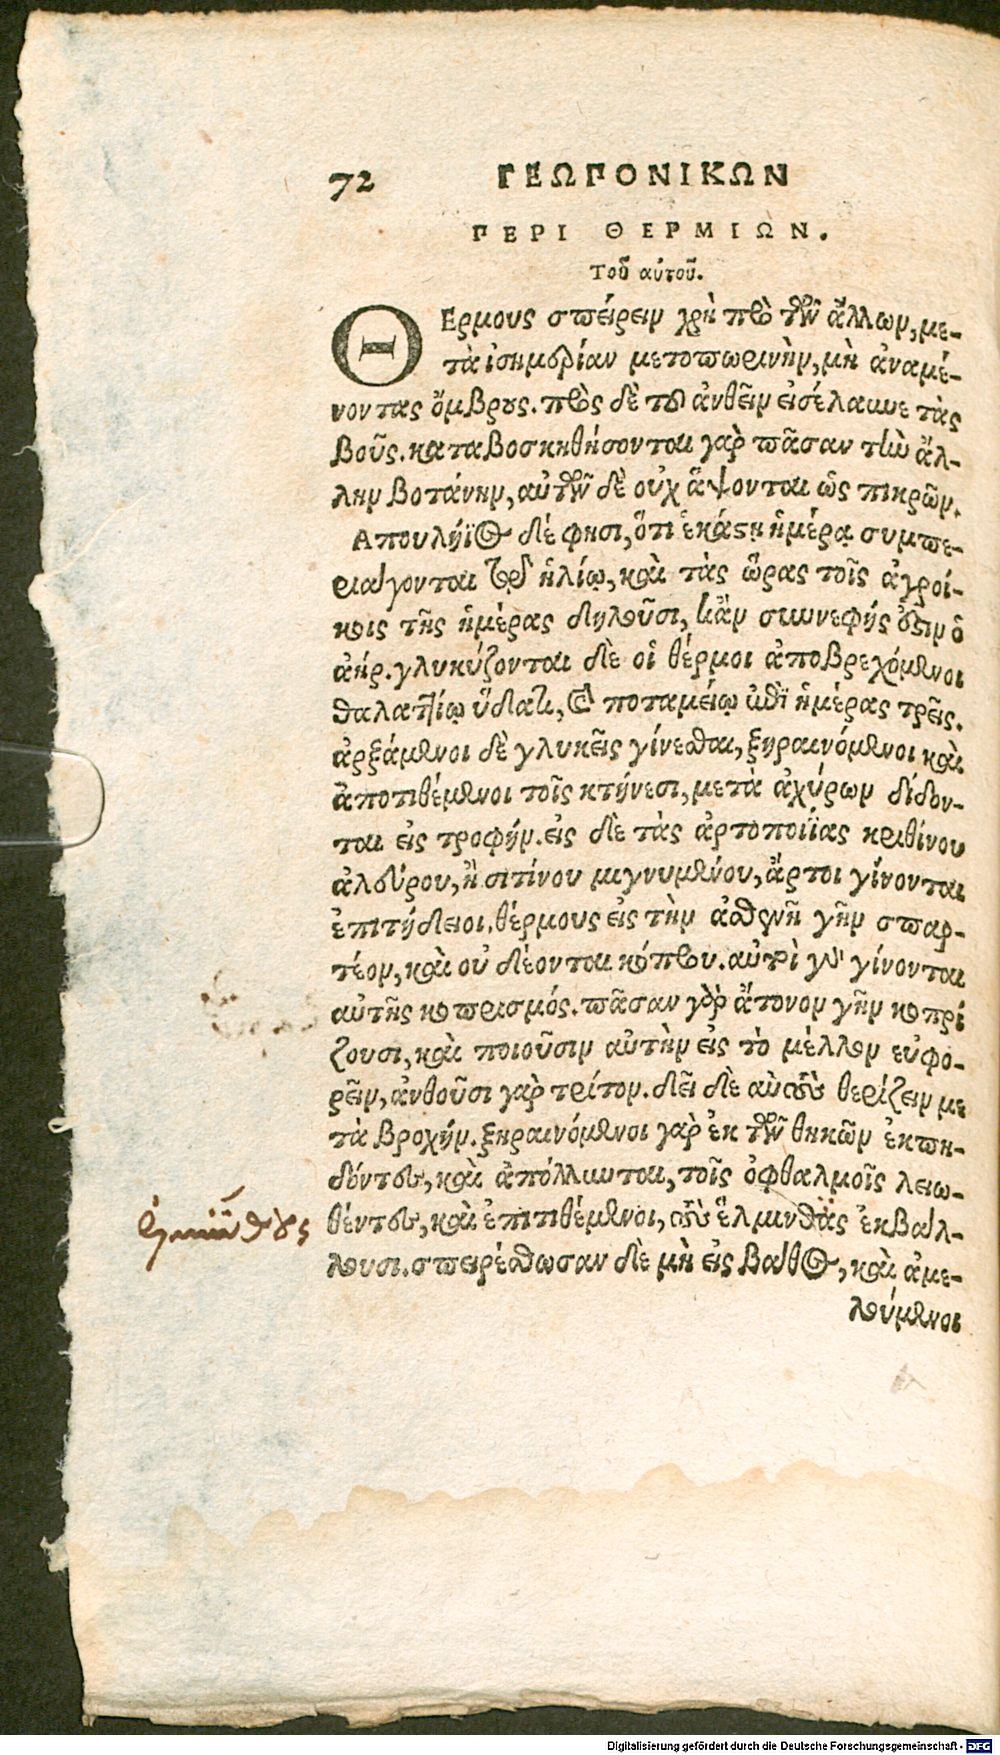 72 ΓΕΩΠΟΝΙΚΩΝ
ΠΕΡΙ ΘΕΡΜΙΩΝ.
Τοῦ αὐτοῦ.
ΘΕρμους σπείρειν χρὴ πρὸ τῶν ἄλλων, με-
τὰ ἰσημερίαν μετοπωρινὴν, μὴ ἀναμέ-
νοντας ὄμβρους. πρὸς δὲ τὸ ἀνθεῖν εἰσέλαυνε τὰς
βοῦς. καταβοσκηθήσονται γὰρ πᾶσαν τὴν ἄλ-
λην βοτάνην, αὐτῶν δὲ οὐχ ἅψονται ὡς πικρῶν.
Απουλήϊος δέ φησι, ὅτι ἑκάστῃ ἡμέρᾳ συμπε-
ριάγονται τῷ ἡλίῳ, καὶ τὰς ὥρας τοῖς ἀγροί-
κοις τῆς ἡμέρας δηλοῦσι, κἂν συννεφής ἐστιν ὁ
ἀήρ. γλυκύζονται δὲ οἱ θέρμοι ἀποβρεχόμενοι
θαλαττίῳ ὕδατι, καὶ ποταμείῳ ἐπὶ ἡμέρας τρεῖς.
ἀρξάμενοι δὲ γλυκεῖς γίνεσθαι, ξηραινόμενοι καὶ
ἀποτιθέμενοι τοῖς κτήνεσι, μετὰ ἀχύρων δίδον-
ται εἰς τροφήν. εἰς δὲ τὰς ἀρτοποιΐας κριθίνου
ἀλεύρου, ἢ σιτίνου μιγνυμένου, ἄρτοι γίνονται
ἐπιτήδειοι. θέρμους εἰς τὴν ἀσθενῆ γῆν σπαρ-
τέον, καὶ οὐ δέονται κόπρου. αὐτοὶ γὰρ γίνονται
αὐτῆς κοπρισμός. πᾶσαν γὰρ ἄτονον γῆν κοπρί
ζουσι, καὶ ποιοῦσιν αὐτὴν εἰς τὸ μέλλον εὐφο-
ρεῖν, ἀνθοῦσι γὰρ τρίτον. δεῖ δὲ αὐτοὺς θερίζειν με
τὰ βροχήν. ξηραινόμενοι γὰρ ἐκ τῶν θηκῶν ἐκπη-
δόντες, καὶ ἀπόλλυνται, τοῖς ὀφθαλμοῖς λειω-
θέντες, καὶ ἐπιτιθέμενοι, τοὺς ἕλμινθας ἐκβάλ-
λουσι. σπειρέσθωσαν δὲ μὴ εἰς βάθος, καὶ ἀμε-
λούμενοι
Digitalisierung gefördert durch die Deutsche Forschungsgemeinschaft - DFG